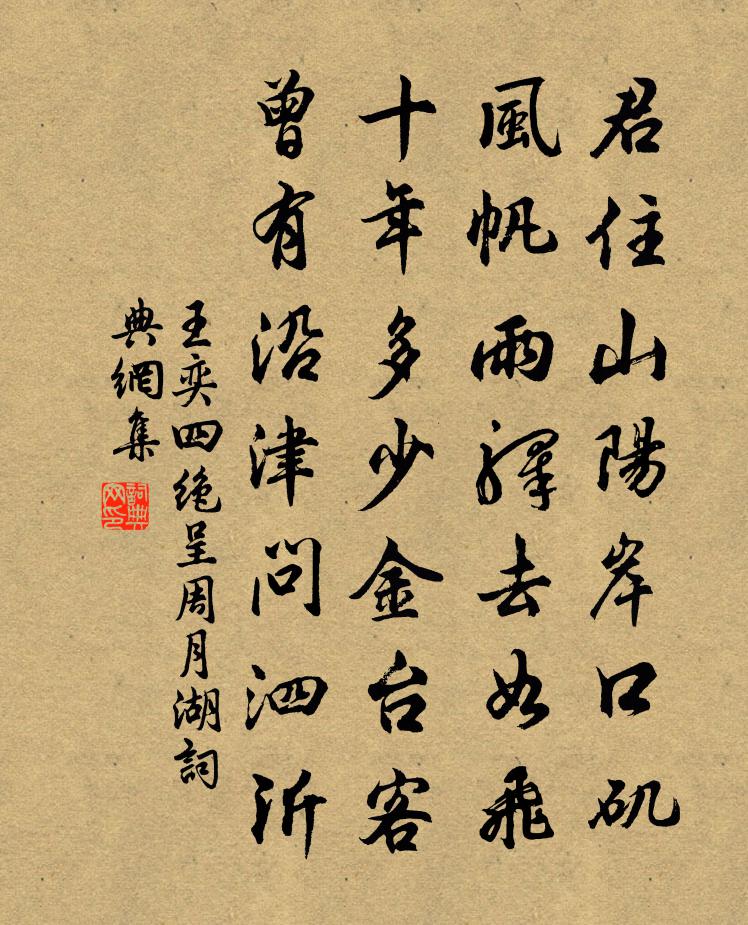 君住山陽岸口矶
風帆兩驛去如飛
十年多少金台客
曾有沿津問泗沂
王奕四绝呈周月湖詞
典網集
詞典
网印